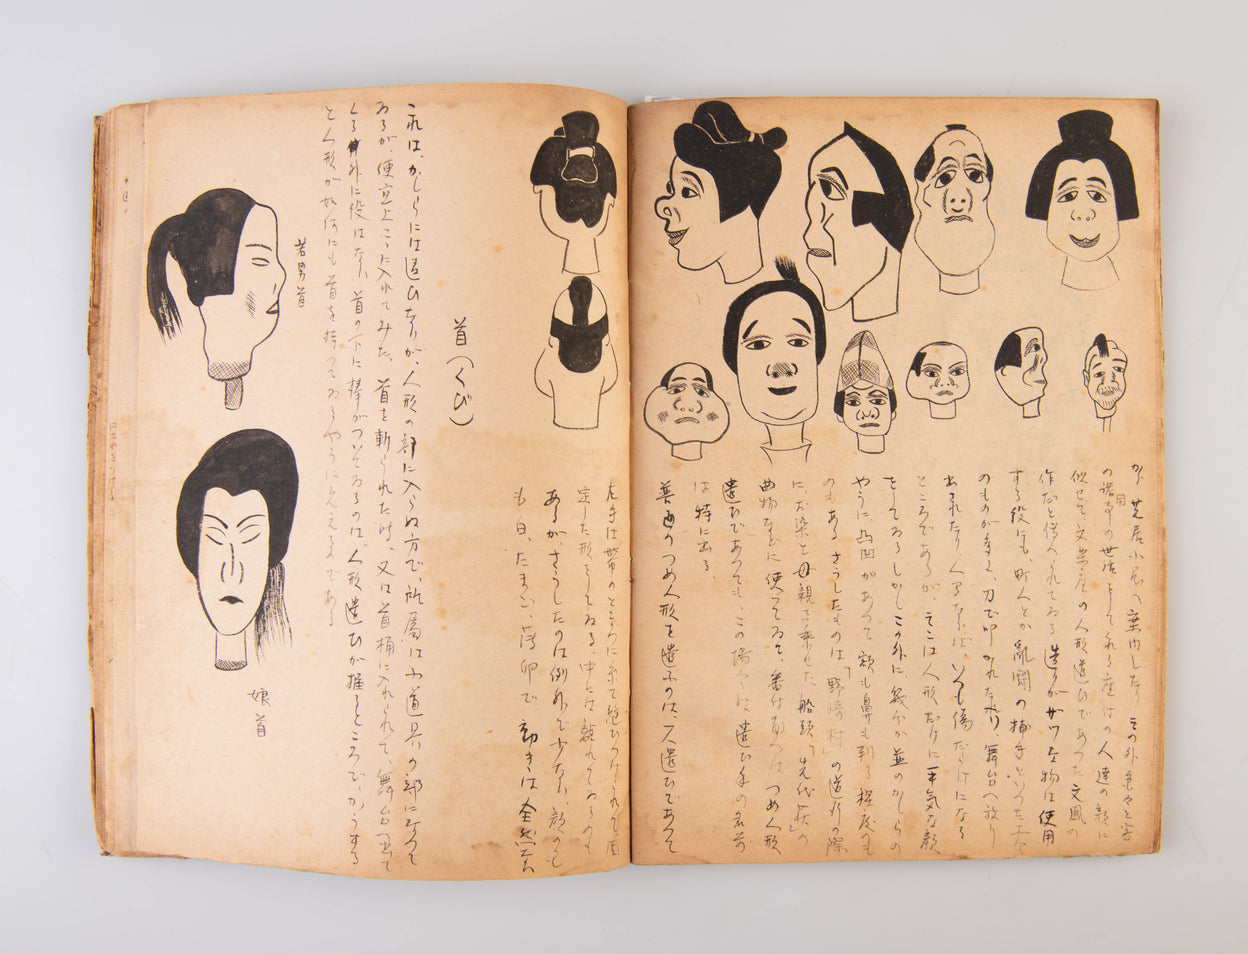 か、芝居小屋へ案内したり、その外色々と客
の諸用の世話をしてくれる座付の人達の顔に
似せて文楽座の人形遣ひであつた文鳳の
作だと傳へられてゐる。造りがザツな物は使用
する役にも、町人とか亂鬪の捕手といつた
のものが多く、刀で叩かれたり、舞台へ放り
出されたり、人形ながら、いつも傷だらけになる
ところであるが、そこは人形だけに平気な顔
をしてゐる。しかしこの外に、幾分か並のかしらの
やうに、凸凹があつて、額も鼻も判る程度のも
のもある。さうしたものは、「野崎村」の道行の際
に、お染と母親を乗せた船頭、「先代萩」の
曲物などに使つてゐて、番付面には、つめ人形
遣ひであつても、この場合には遣ひ手の名前
は特に出る。
普通のつめ人形を遣ふのは、一人遣ひであつて
左手は帯のところに糸で縫ひつけられて固
定した形をしてゐる。中には離れてゐるのも
あるが、さうしたのは例外で少ない。顔のも
も白、たまご、薄卵で、動きは全然
首(くび)
これは、かしらには違ひないが、人形の部に入らぬ方で、所屬は小道具の部になつて
ゐるが、便宜上こゝに入れてみた。首を斬られた時、又は首桶に入れられて、舞台へ出て
くる外に役はない。首の下に棒がついてゐるのは、人形遣ひが握るところで、かうする
と人形が如何にも首を持つてゐるやうに見えるのである
若男首
娘首